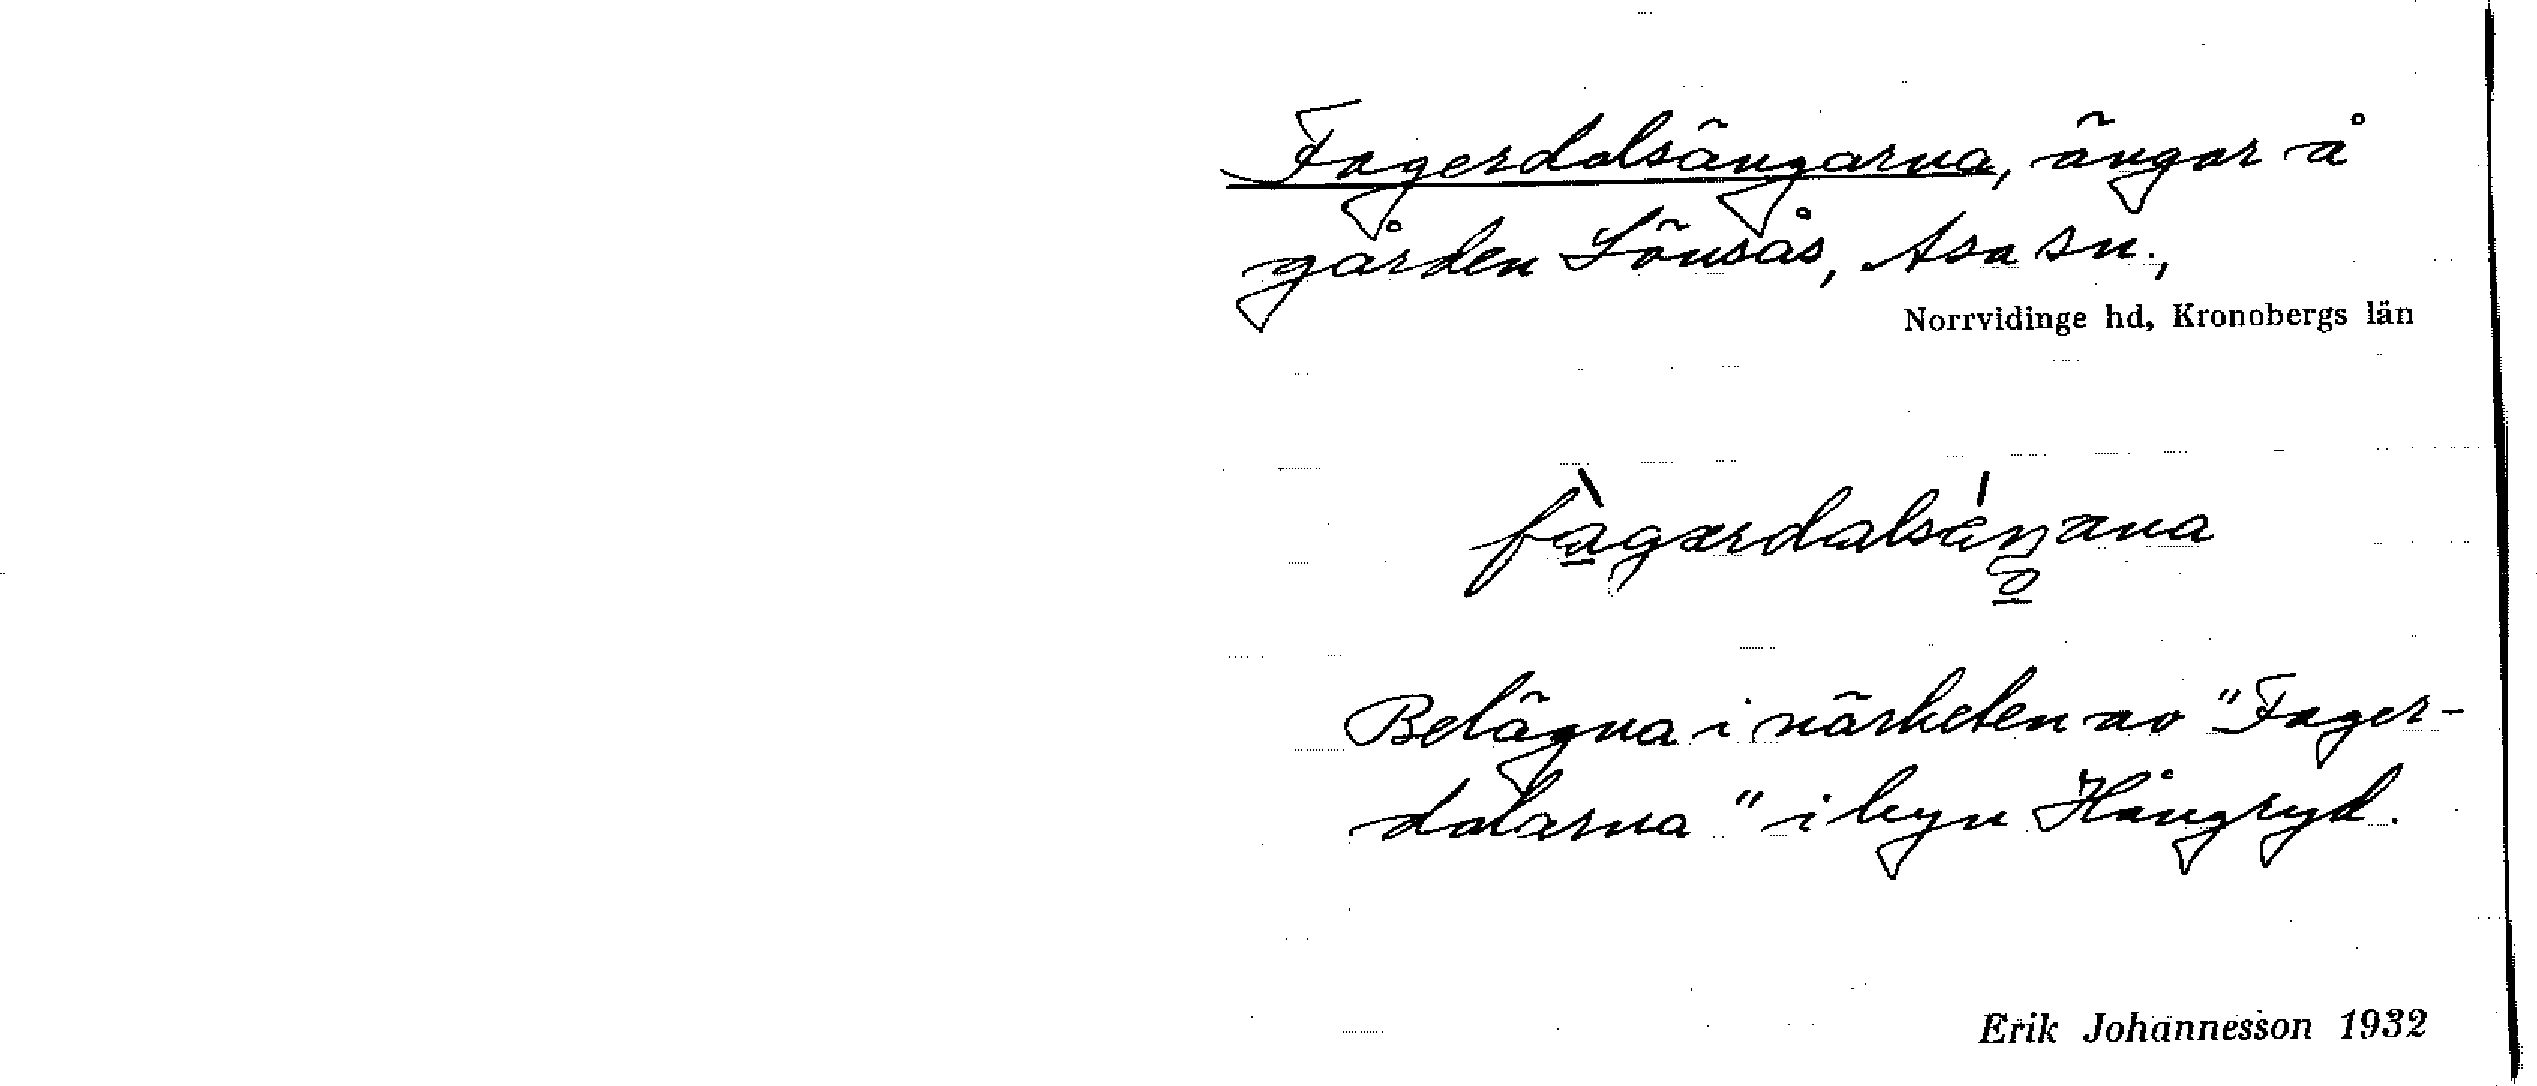 Fagerdalsängarna, ängar å
gården Lönsås, Asa sn.,
Norrvidinge hd, Kronobergs län
Belägna i närheten av "Fager-
dalarna" i byn Hångryd.
Erik Johannesson 1932